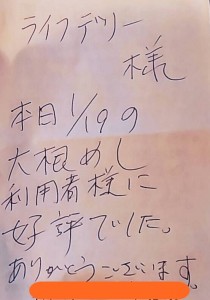 ライフデリー
様
本日1/19の
大根めし
利用者様に
好評でした。
ありがとうございます。